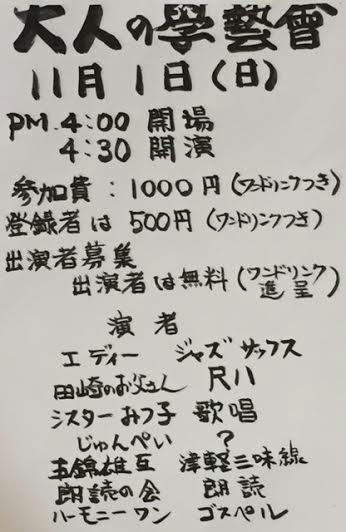 大人の學藝會
11月1日(日)
PM.4:00 開場
4:30 開演
参加費:1000円(ワンドリンクつき)
登録者は500円(ワンドリンクつき)
出演者募集
出演者は無料(ワンドリンク進呈)
演者
エディー ジャズサックス
田崎のお父さん 尺八
シスターみつ子 歌唱
じゅんぺい ?
玉錦雄互 津軽三味線
朗読の会 朗読
ハーモニーワン ゴスペル